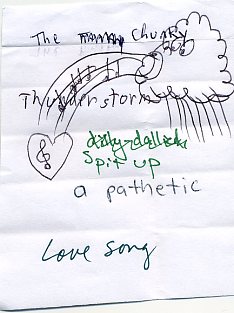 The Chunky
Thunderstorm
Spit up
a pathetic
Love song